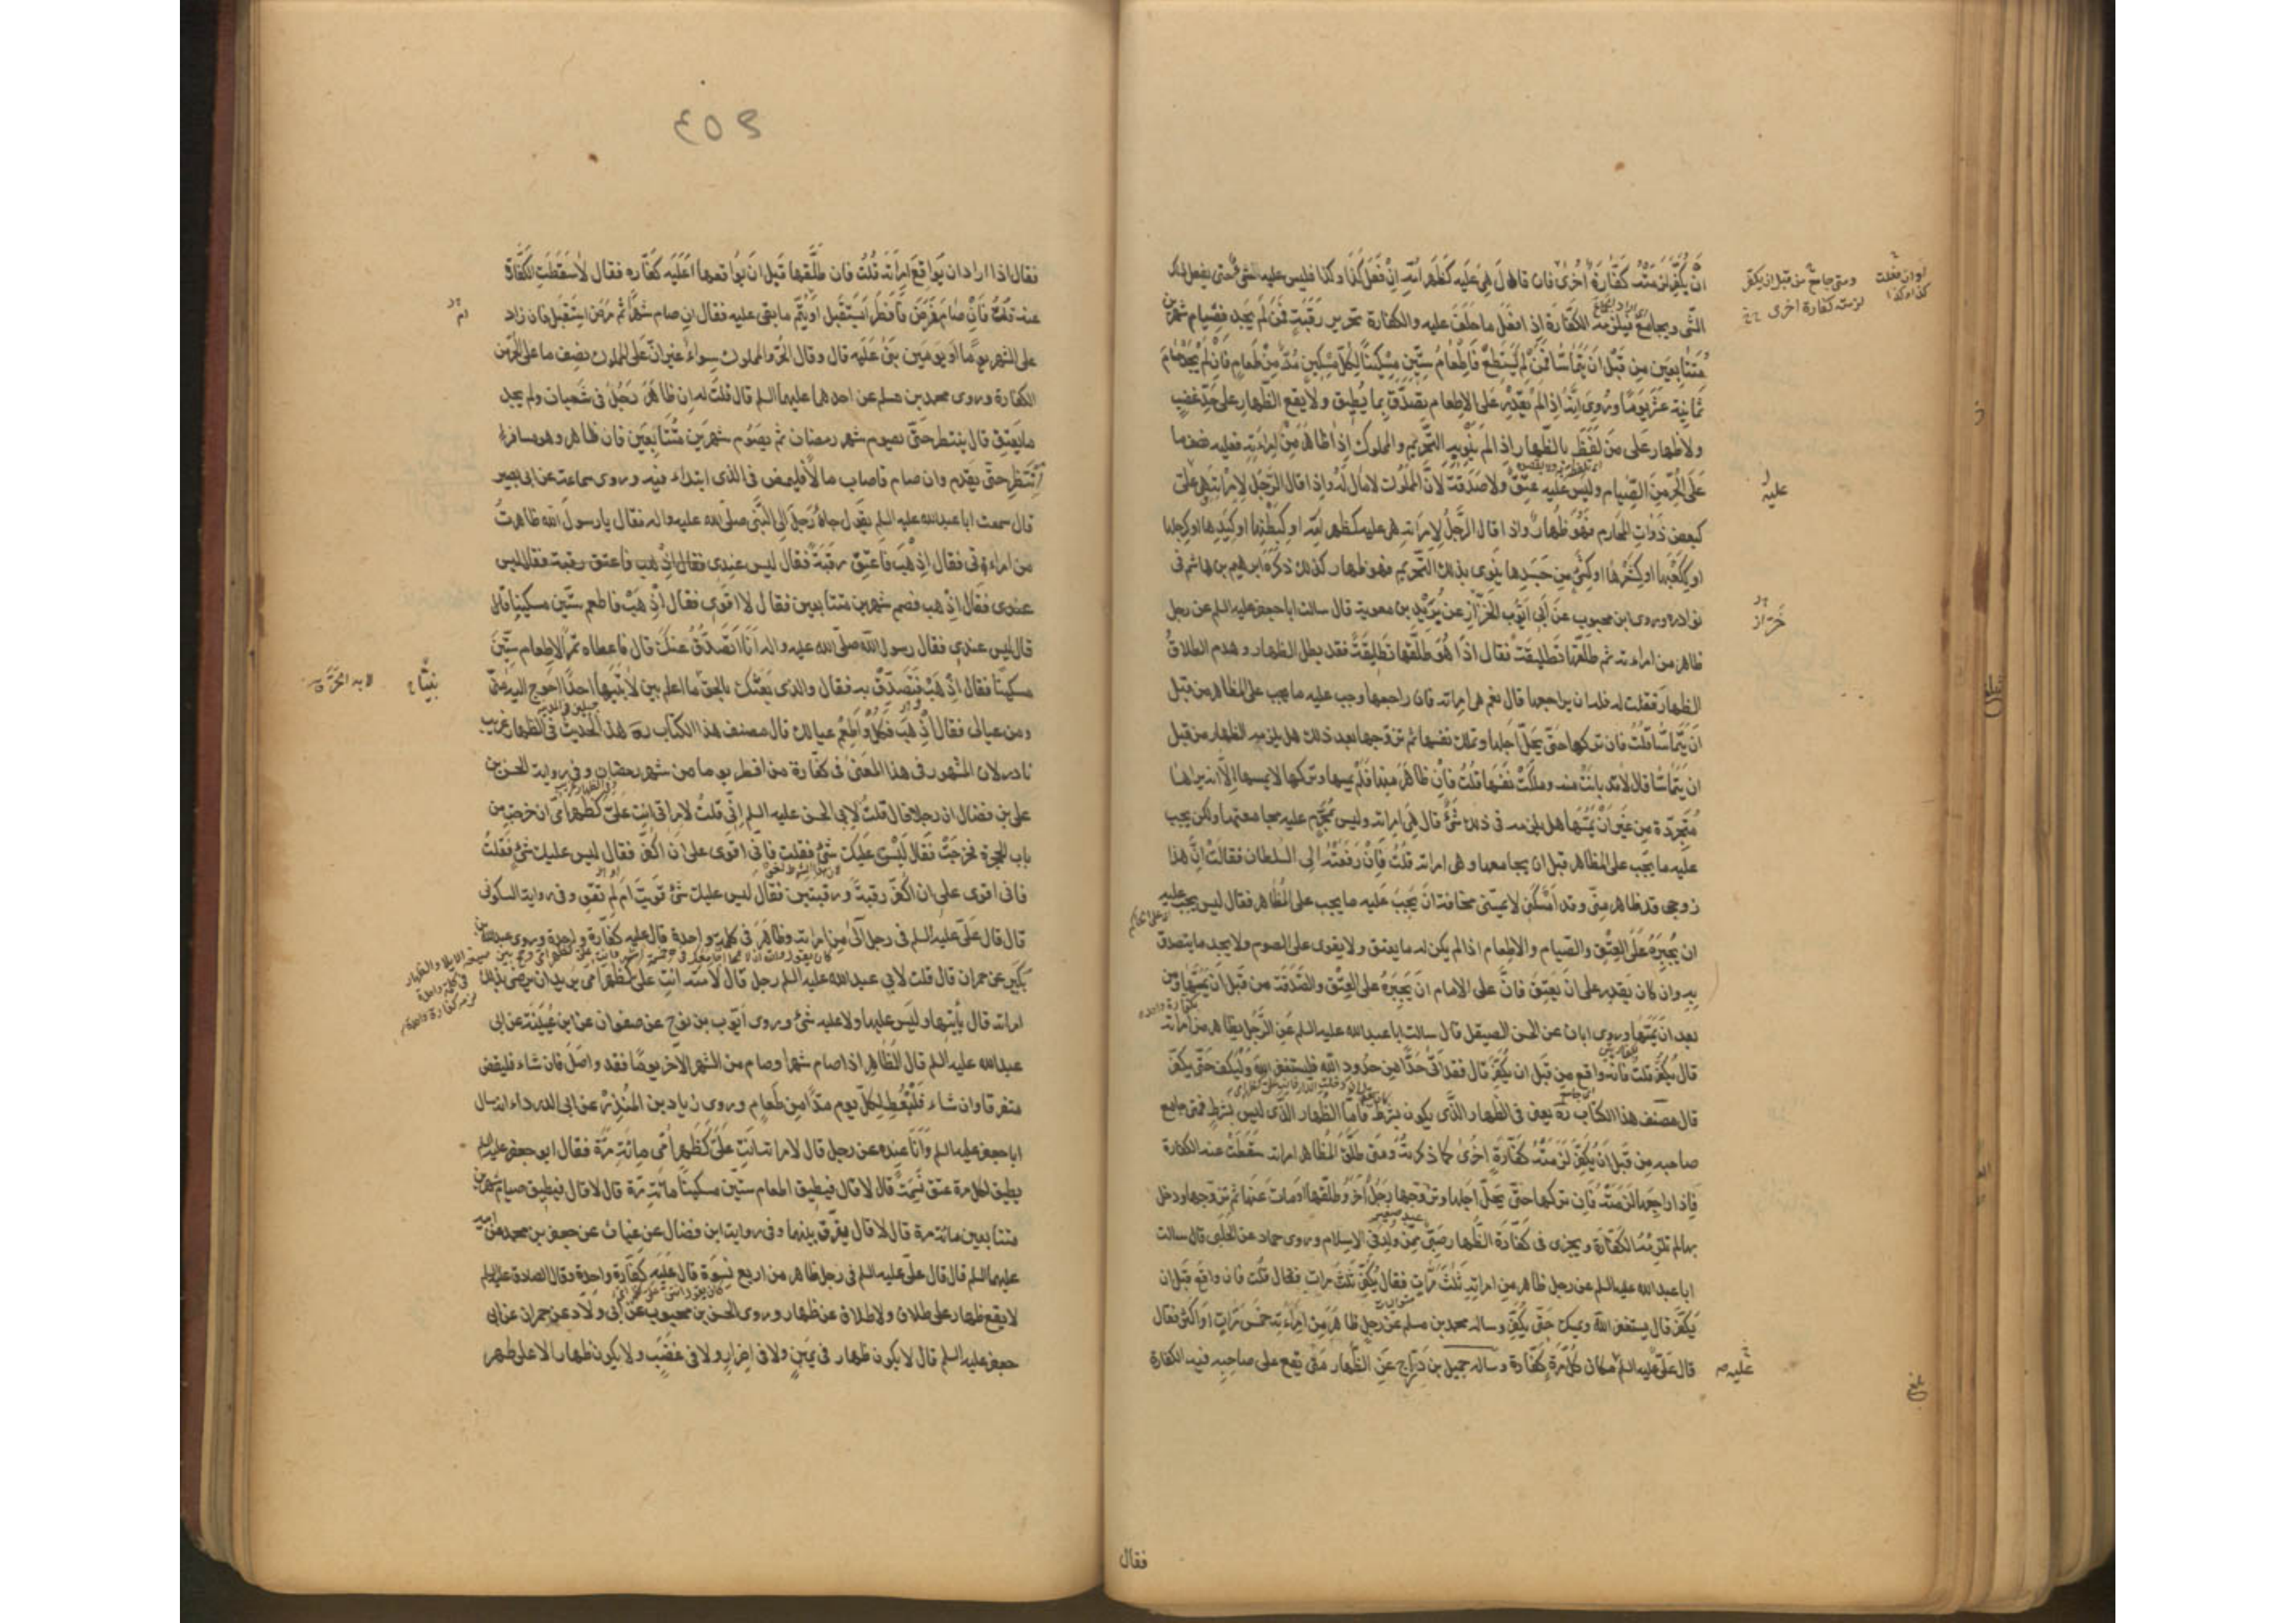 ان يكفر لزمته كفارة اخرى فان قال هي عليه كظهر امه ان فعل كذا وكذا فليس عليه شئ حتى يفعل ذلك
الشئ ويجامع فيلزمه الكفارة اذا فعل ما حلف عليه والكفارة تحرير رقبة فمن لم يجد فصيام شهرين
متتابعين من قبل ان يتماسا فمن لم يستطع فاطعام ستين مسكينا لكل مسكين مد من طعام فان لم يجد صام
ثمانية عشر يوما وروي انه اذا لم يقدر على الاطعام يصدق بما يطيق ولا يقع الظهار على حد غضب
ولا ظهار على من لفظ بالظهار اذا لم ينو به التحريم والمملوك اذا ظاهر من امراته فعليه نصف ما
على الحر من الصيام وليس عليه عتق ولا صدقة لان المملوك لا مال له واذا قال الرجل لامراته هي علي
كبعض ذوات المحارم فهو ظهار واذا قال الرجل لامراته هي عليه كظهر امه او كبطنها او كيدها او كرجلها
او ككعبها او كشعرها او كشئ من جسدها ينوي بذلك التحريم فهو ظهار كذلك ذكره ابرهيم بن هاشم في
نوادره وروى ابن محبوب عن ابي ايوب الخزاز عن يزيد بن معوية قال سالت ابا جعفر عليه السلم عن رجل
ظاهر من امراته ثم طلقها تطليقة فقال اذا هو طلقها تطليقة فقد بطل الظهار وهدم الطلاق
الظهار فقلت له فله ان يراجعها قال نعم هي امراته فان راجعها وجب عليه ما يجب على المظاهر من قبل
ان يتماسا قلت فان تركها حتى يحل اجلها وتملك نفسها ثم تزوجها بعد ذلك هل يلزمه الظهار من قبل
ان يتماسا قال لا قد بانت منه وملكت نفسها قلت فان ظاهر منها فلم يمسها وتركها لا يمسها الا انه يراها
متجردة من غير ان يمسها هل يلزمه في ذلك شئ قال هي امراته وليس بمحرم عليه مجامعتها ولكن يجب
عليه ما يجب على المظاهر قبل ان يجامعها وهي امراته قلت فان رفعته الى السلطان فقالت ان هذا
زوجي قد ظاهر مني وقد امسكني لا يمسني مخافة ان يجب عليه ما يجب على المظاهر فقال ليس يجب عليه
ان يجبره على العتق والصيام والاطعام اذا لم يكن له ما يعتق ولا يقوى على الصوم ولا يجد ما يتصدق
به وان كان يقدر على ان يعتق فان على الامام ان يجبره على العتق والصدقة من قبل ان يمسها ومن
بعد ان يمسها وروى ابان عن الحسن الصيقل قال سالت ابا عبد الله عليه السلم عن الرجل يظاهر من امراته
قال يكفر قلت فانه واقع من قبل ان يكفر قال فقد اتى حدا من حدود الله فليستغفر الله وليكف حتى يكفر
قال مصنف هذا الكتاب ره يعني في الظهار الذي يكون بشرط فاما الظهار الذي ليس بشرط فمتى جامع
صاحبه من قبل ان يكفر لزمته كفارة اخرى كما ذكرته ومتى طلق المظاهر امراته سقطت عنه الكفارة
فاذا راجعها لزمته فان تركها حتى يحل اجلها وتزوجها رجل آخر وطلقها او مات عنها ثم تزوجها ودخل
بها لم تلزمه الكفارة ويجزي في كفارة الظهار صبي ممن ولد في الاسلام وروى حماد عن الحلبي قال سالت
ابا عبد الله عليه السلم عن رجل ظاهر من امراته ثلث مرات فقال يكفر ثلث مرات فقال قلت فان واقع قبل ان
يكفر قال يستغفر الله ويمسك حتى يكفر وساله محمد بن مسلم عن رجل ظاهر من امراته خمس مرات او اكثر فقال
قال علي عليه السلم مكان كل مرة كفارة وساله جميل بن دراج عن الظهار متى يقع على صاحبه فيه الكفارة
او ان فعلت
كذا وكذا
ومتى جامع من قبل ان يكفر
لزمته كفارة اخرى
عليه
خزاز
عليه
بلغ
فقال
٤٥٤
فقال اذا اراد ان يواقع امراته قلت فان طلقها قبل ان يواقعها اعليه كفارة فقال لا سقطت الكفارة
عنه قلت فان صام فمرض فافطر ايستقبل او يتم ما بقي عليه فقال ان صام شهرا ثم مرض استقبل فان زاد
على الشهر يوما او يومين بنى عليه قال وقال الحر والمملوك سواء غير ان على المملوك نصف ما على الحر من
الكفارة وروى محمد بن مسلم عن احدهما عليهما السلم قال قلت له ان ظاهر رجل في شعبان ولم يجد
ما يعتق قال ينتظر حتى يصوم شهر رمضان ثم يصوم شهرين متتابعين فان ظاهر وهو مسافر
انتظر حتى يقدم وان صام فاصاب مالا فليمض في الذي ابتداء فيه وروى سماعة عن ابي بصير
قال سمعت ابا عبد الله عليه السلم يقول جاء رجل الى النبي صلى الله عليه واله فقال يا رسول الله ظاهرت
من امراءتي فقال اذهب فاعتق رقبة فقال ليس عندي فقال اذهب فاعتق رقبة فقال ليس
عندي فقال اذهب فصم شهرين متتابعين فقال لا اقوى فقال اذهب فاطعم ستين مسكينا قال
قال ليس عندي فقال رسول الله صلى الله عليه واله انا اتصدق عنك قال فاعطاه تمرا لاطعام ستين
مسكينا فقال اذهب فتصدق به فقال والذي بعثك بالحق ما اعلم بين لابتيها احدا احوج اليه مني
ومن عيالي فقال اذهب فكل واطعم عيالك قال مصنف هذا الكتاب ره هذا الحديث في الظهار غريب
نادر لان المشهور في هذا المعنى في كفارة من افطر يوما من شهر رمضان وفي رواية الحسن بن
علي بن فضال ان رجلا قال قلت لابي الحسن عليه السلم اني قلت لامراتي انت علي كظهر امي ان خرجت من
باب الحجرة فخرجت فقال ليس عليك شئ فقلت فاني اقوى على ان اكفر فقال ليس عليك شئ فقلت
فاني اقوى على ان اكفر رقبة ورقبتين فقال ليس عليك شئ قويت ام لم تقو وفي رواية السكوني
قال قال علي عليه السلم في رجل آلى من امراته وظاهر في كلمة واحدة قال عليه كفارة واحدة وروى عبد الله بن
بكير عن حمران قال قلت لابي عبد الله عليه السلم رجل قال لامته انت علي كظهر امي يريد ان يرضي بذلك
امراته قال ياتيها وليس عليها ولا عليه شئ وروى ايوب بن نوح عن صفوان عن ابن عيينة عن ابي
عبد الله عليه السلم قال المظاهر اذا صام شهرا وصام من الشهر الآخر يوما فقد واصل فان شاء فليقض
متفرقا وان شاء فليعط لكل يوم مدا من طعام وروى زياد بن المنذر عن ابي الدرداء انه سال
ابا جعفر عليه السلم وانا عنده عن رجل قال لامراته انت علي كظهر امي مائة مرة فقال ابو جعفر عليه السلم
يطيق لكل مرة عتق نسمة قال لا قال فيطيق اطعام ستين مسكينا مائة مرة قال لا قال فيطيق صيام شهرين
متتابعين مائة مرة قال لا قال يفرق بينهما وفي رواية ابن فضال عن غياث عن جعفر بن محمد عن ابيه
عليهما السلم قال قال علي عليه السلم في رجل ظاهر من اربع نسوة قال عليه كفارة واحدة وقال الصادق عليه السلم
لا يقع ظهار على طلاق ولا طلاق على ظهار وروى الحسن بن محبوب عن ابي ولاد عن حمران عن ابي
جعفر عليه السلم قال لا يكون ظهار في يمين ولا في اضرار ولا في غضب ولا يكون ظهار الا على طهر
لابة الحرة